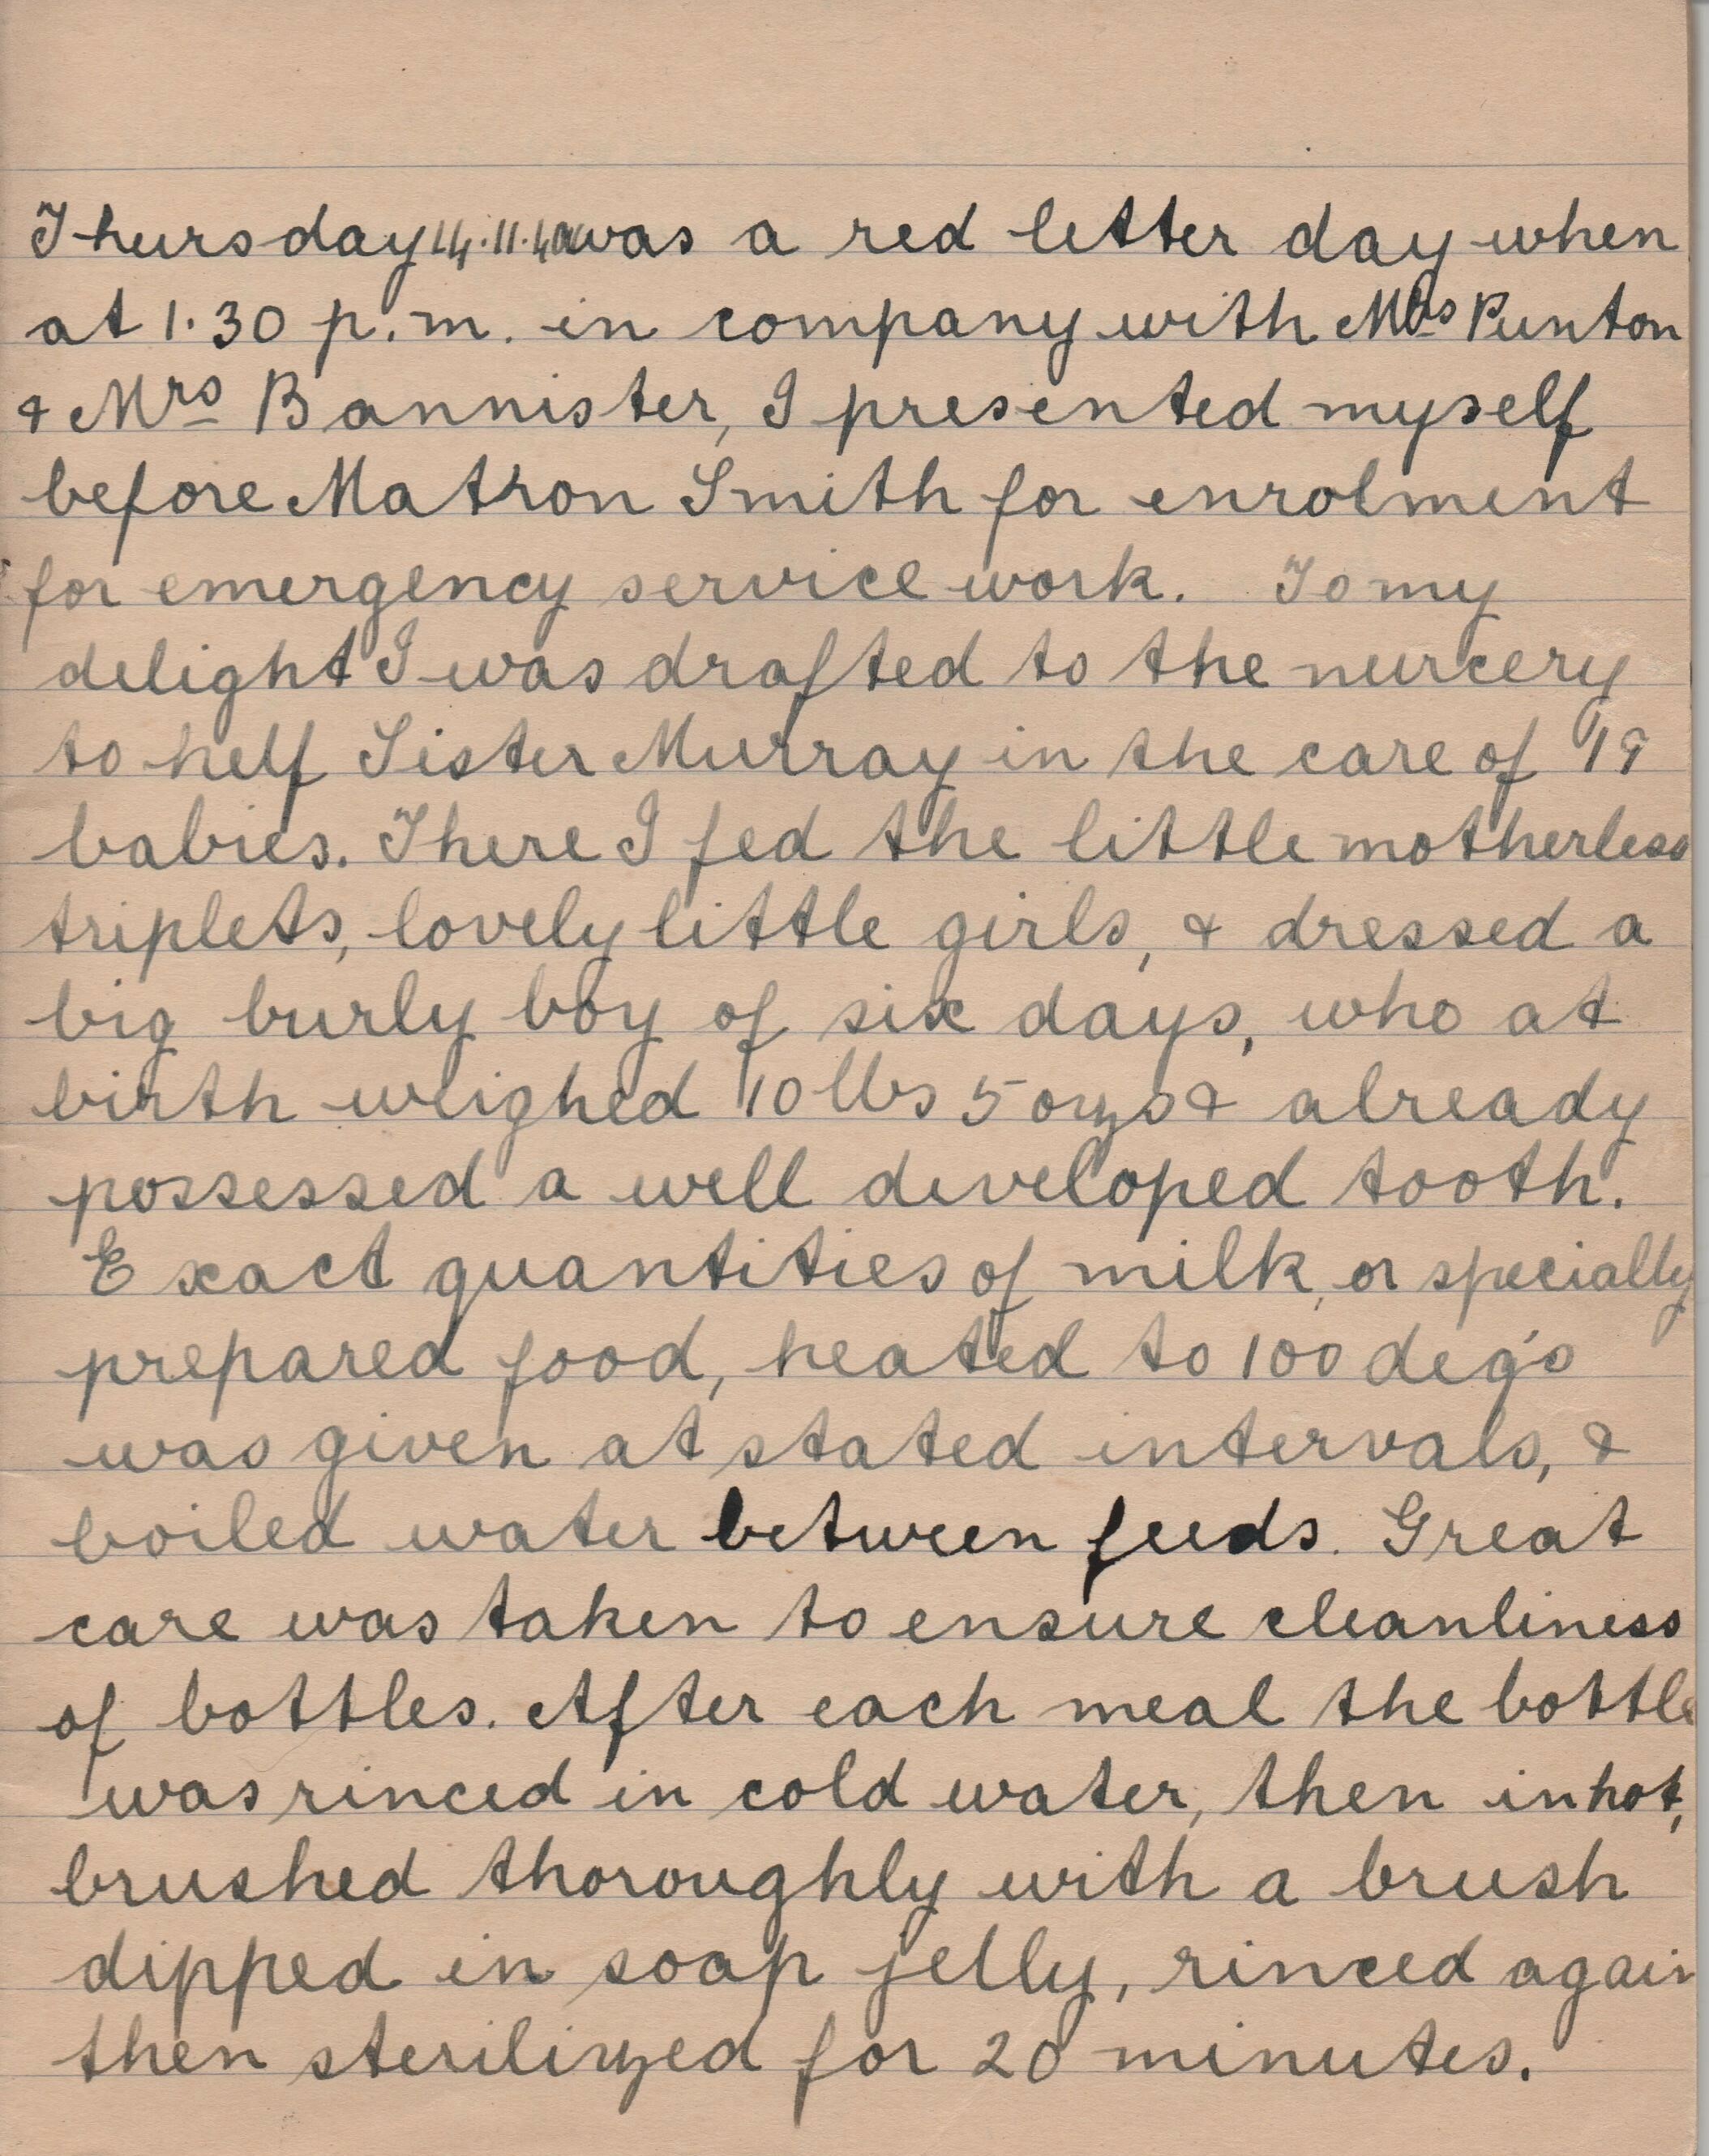 Thursday 14.11.40 was a red letter day when
at 1.30 p.m. in company with Mrs Punton
& Mrs Bannister, I presented myself
before Matron Smith for enrolment
for emergency service work. To my
delight I was drafted to the nurcery
to help Sister Murray in the care of 19
babies. There I fed the little motherless
triplets, lovely little girls, & dressed a
big burly boy of six days, who at
birth weighed 10 lbs 5 ozs & already
possessed a well developed tooth.
Exact quantities of milk, or specially
prepared food, heated to 100 deg's
was given at stated intervals, &
boiled water between feeds. Great
care was taken to ensure cleanliness
of bottles. After each meal the bottle
was rinced in cold water, then in hot,
brushed thoroughly with a brush
dipped in soap jelly, rinced again
then sterilized for 20 minutes.